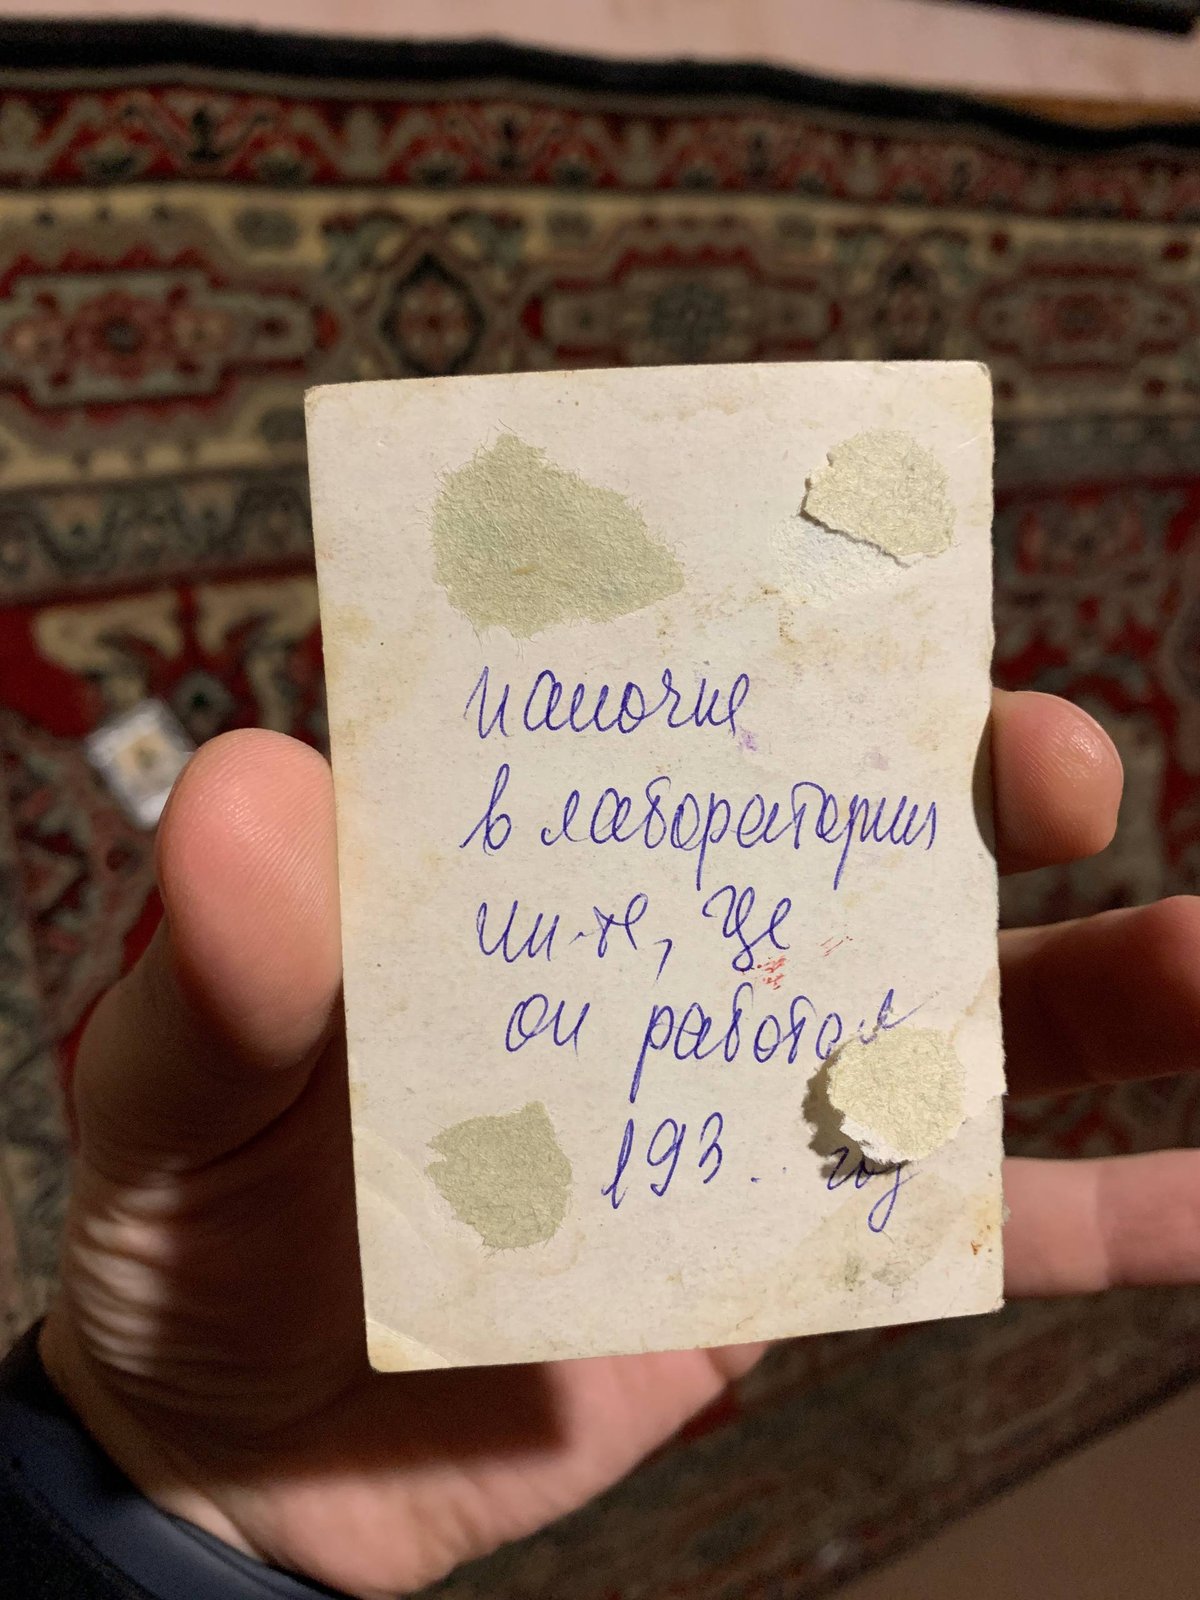 папочке
в лаборатории
ин-те, где
он работал
193.. год